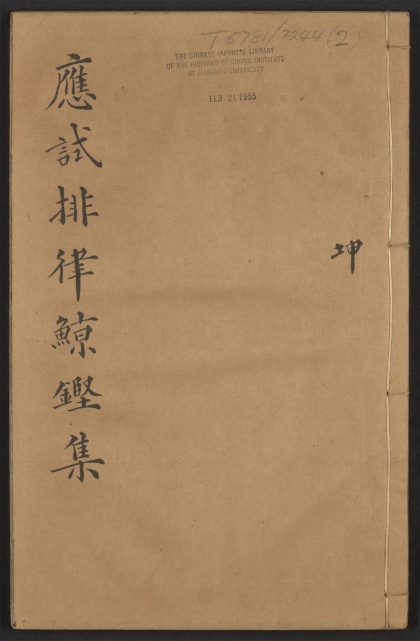 T 5781/7244 (2)
THE CHINESE-JAPANESE LIBRARY
OF THE HARVARD-YENCHING INSTITUTE
AT HARVARD UNIVERSITY
FEB 21 1955
坤
應試排律鯨鏗集